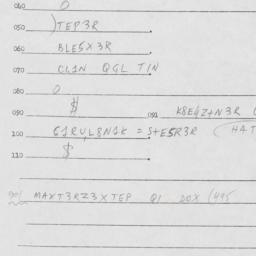 040 0
050 )TEP3R
060 BLE5X3R
070 CL1N QGL T1N
080 0
090 $ 091 K8E4Z+N3R (
100 61RVL8N1K = S+E5R3R (HAT
110 $
901 MAXT3RZ3XTEP Q1 DOX (495